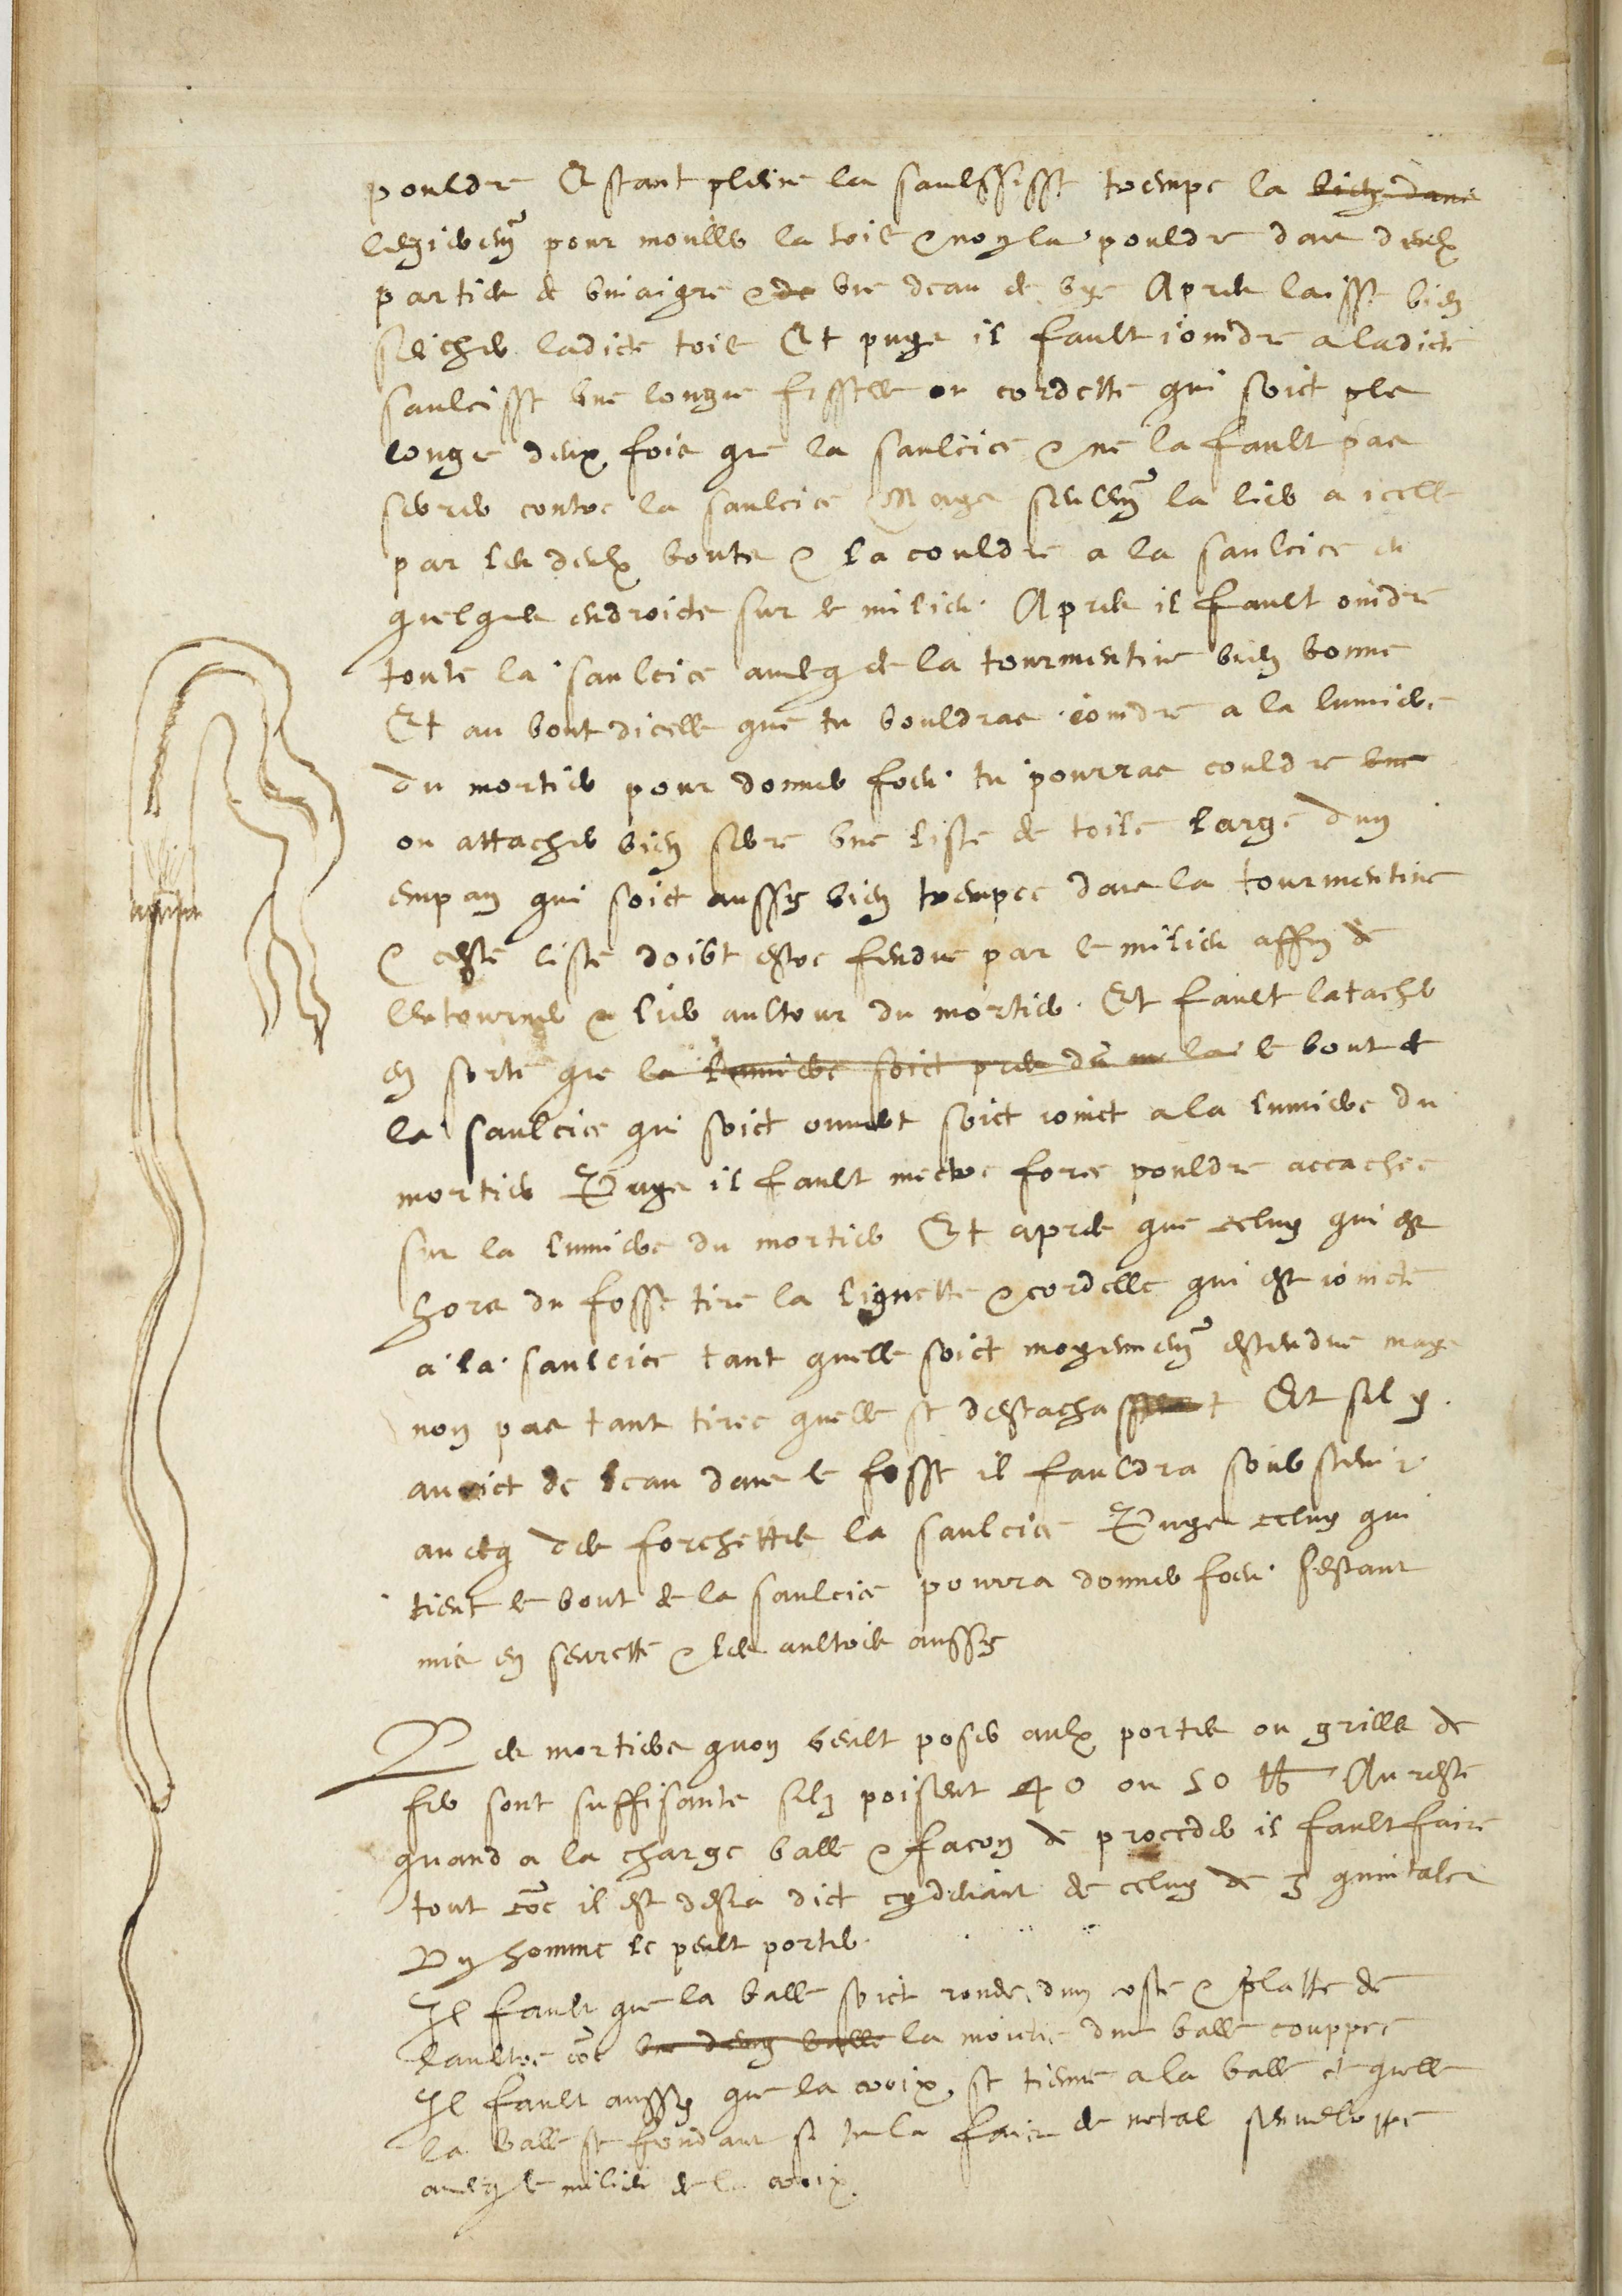 pouldre Estant pleine la saulssisse trempe la bien dans
legierem̃ pour mouiller la toile & non la pouldre dans deulx
parties de vinaigre & de une deau de vye Apres laisse bien
seicher ladicte toile Et puys il fault ioindre a ladicte
saulcisse une longue fisselle ou cordette qui soict plus
longue deux fois que la saulcice & ne la fault pas
serrer contre la saulcice Mays seulem̃ la lier a icelle
par les deulx bouts & la couldre a la saulcice en
quelques endroicts sur le milieu Apres il fault oindre
toute la saulcice avecq de la tourmentine bien bonne
Et au bout dicelle que tu vouldras ioindre a la lumiere
du mortier pour donner foeu tu pourras couldre une
ou attacher bien serre une liste de toile large dun
empan qui soict aussy bien trempee dans la tourmentine
& ceste liste doibt estre fendue par le milieu affin de
lentourner & lier aultour du mortier Et fault latacher
en sorte que la lumiere soict pres du la le bout de
la saulcice qui soict ouvert soict ioinct a la lumiere du
mortier Puys il fault mectre force pouldre attachee
sur la lumiere du mortier Et apres que celuy qui est
hors du fosse tire la lignette & cordelle qui est ioincte
a la saulcice tant quelle soict moyennem̃ estendue mays
non pas tant tiree quelle se destachast Et sil y
avoict de leau dans le fosse il fauldra soubstenir
avecq des forchettes la saulcice Puys celuy qui
tient le bout de la saulcice pourra donner foeu sestant
mis en seurette & les aultres aussy
Les mortiers quon veult poser aulx portes ou grilles de
fer sont suffisants silz poisent 40 ou 50 lb Au reste
quand a la charge balle & facon de proceder il fault faire
tout cõe il est desia dict cy devant de celuy de 3 quintals
Un homme le peult porter
Il fault que la balle soict ronde dun coste & platte de
laultre cõe une demy balle la moictie dune balle couppee
Il fault aussy que la croix se tienne a la balle et quelle
la balle se fondant si tu la fais de metal senveloppe
avecq le milieu de la croix